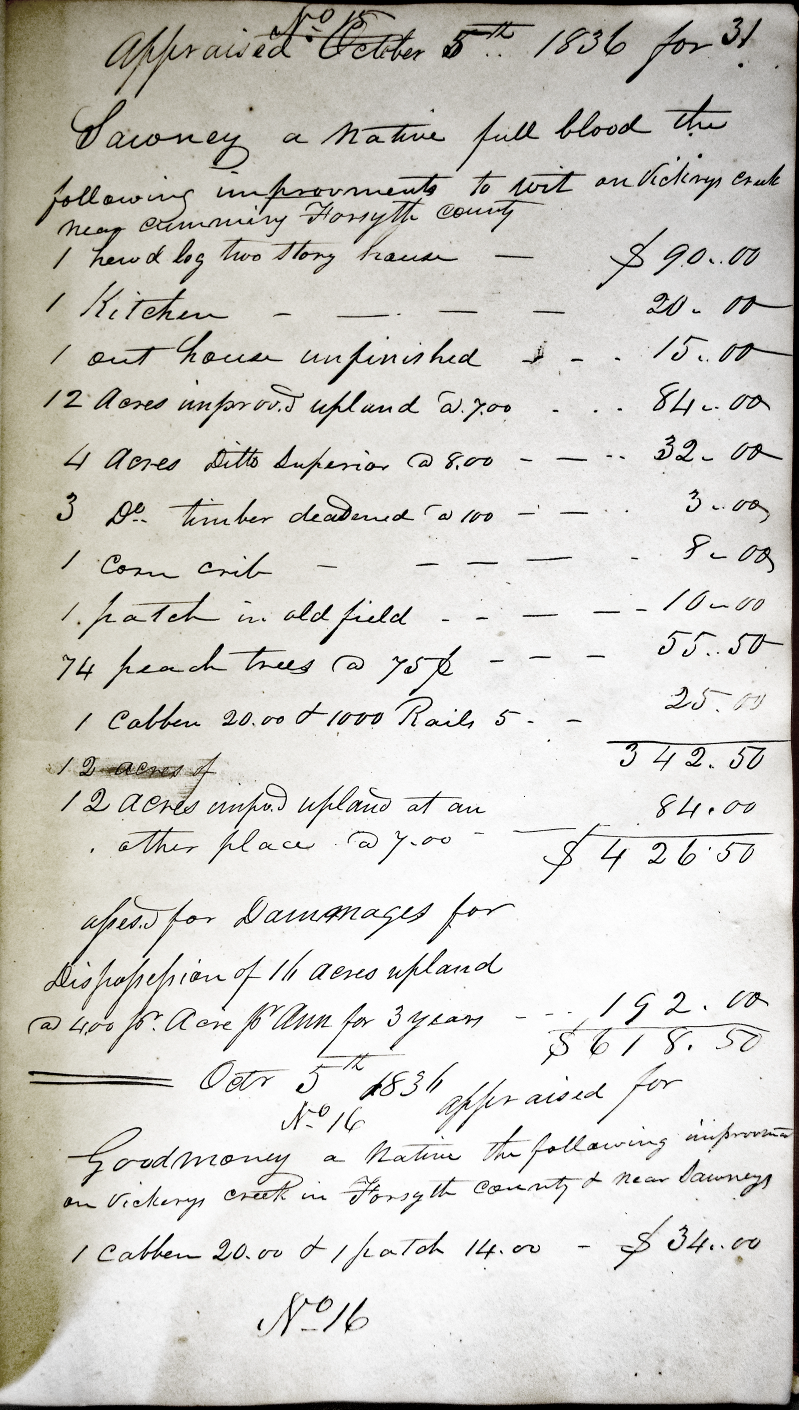 No 15
31
Appraised October 5th 1836 for
Sawney a Native full blood the
following improvments to wit on Vickerys creek
near cumming Forsyth county
1 hewd log two story house — $90..00
1 Kitchen - — — — 20-00
1 out house unfinished - - . 15..00
12 Acres improvd upland @ 7.00 . . . 84..00
4 Acres Ditto Superior @ 8.00 - — .. 32-00
3 Do. timber deadened @ 100 - — . 3-00
1 corn crib - — — — - 8-00
1. patch in old field - - — — - 10-00
74 peach trees @ 75¢ - — - 55..50
1 Cabben 20.00 & 1000 Rails 5- - 25.00
342.50
12 acres of
12 Acres impd upland at an 84.00
other place @ 7.00 - — $426.50
assesd for Dammages for
Dispossession of 16 acres upland
@ 400 pr. Acre pr Ann for 3 years - - . . 192.00
$618.50
Octr 5th 1836
No 16 appraised for
Goodmoney a Native the following
on Vickerys creek in Forsyth county & near Sawneys
1 Cabben 20.00 & 1 patch 14.00 - $34..00
No 16